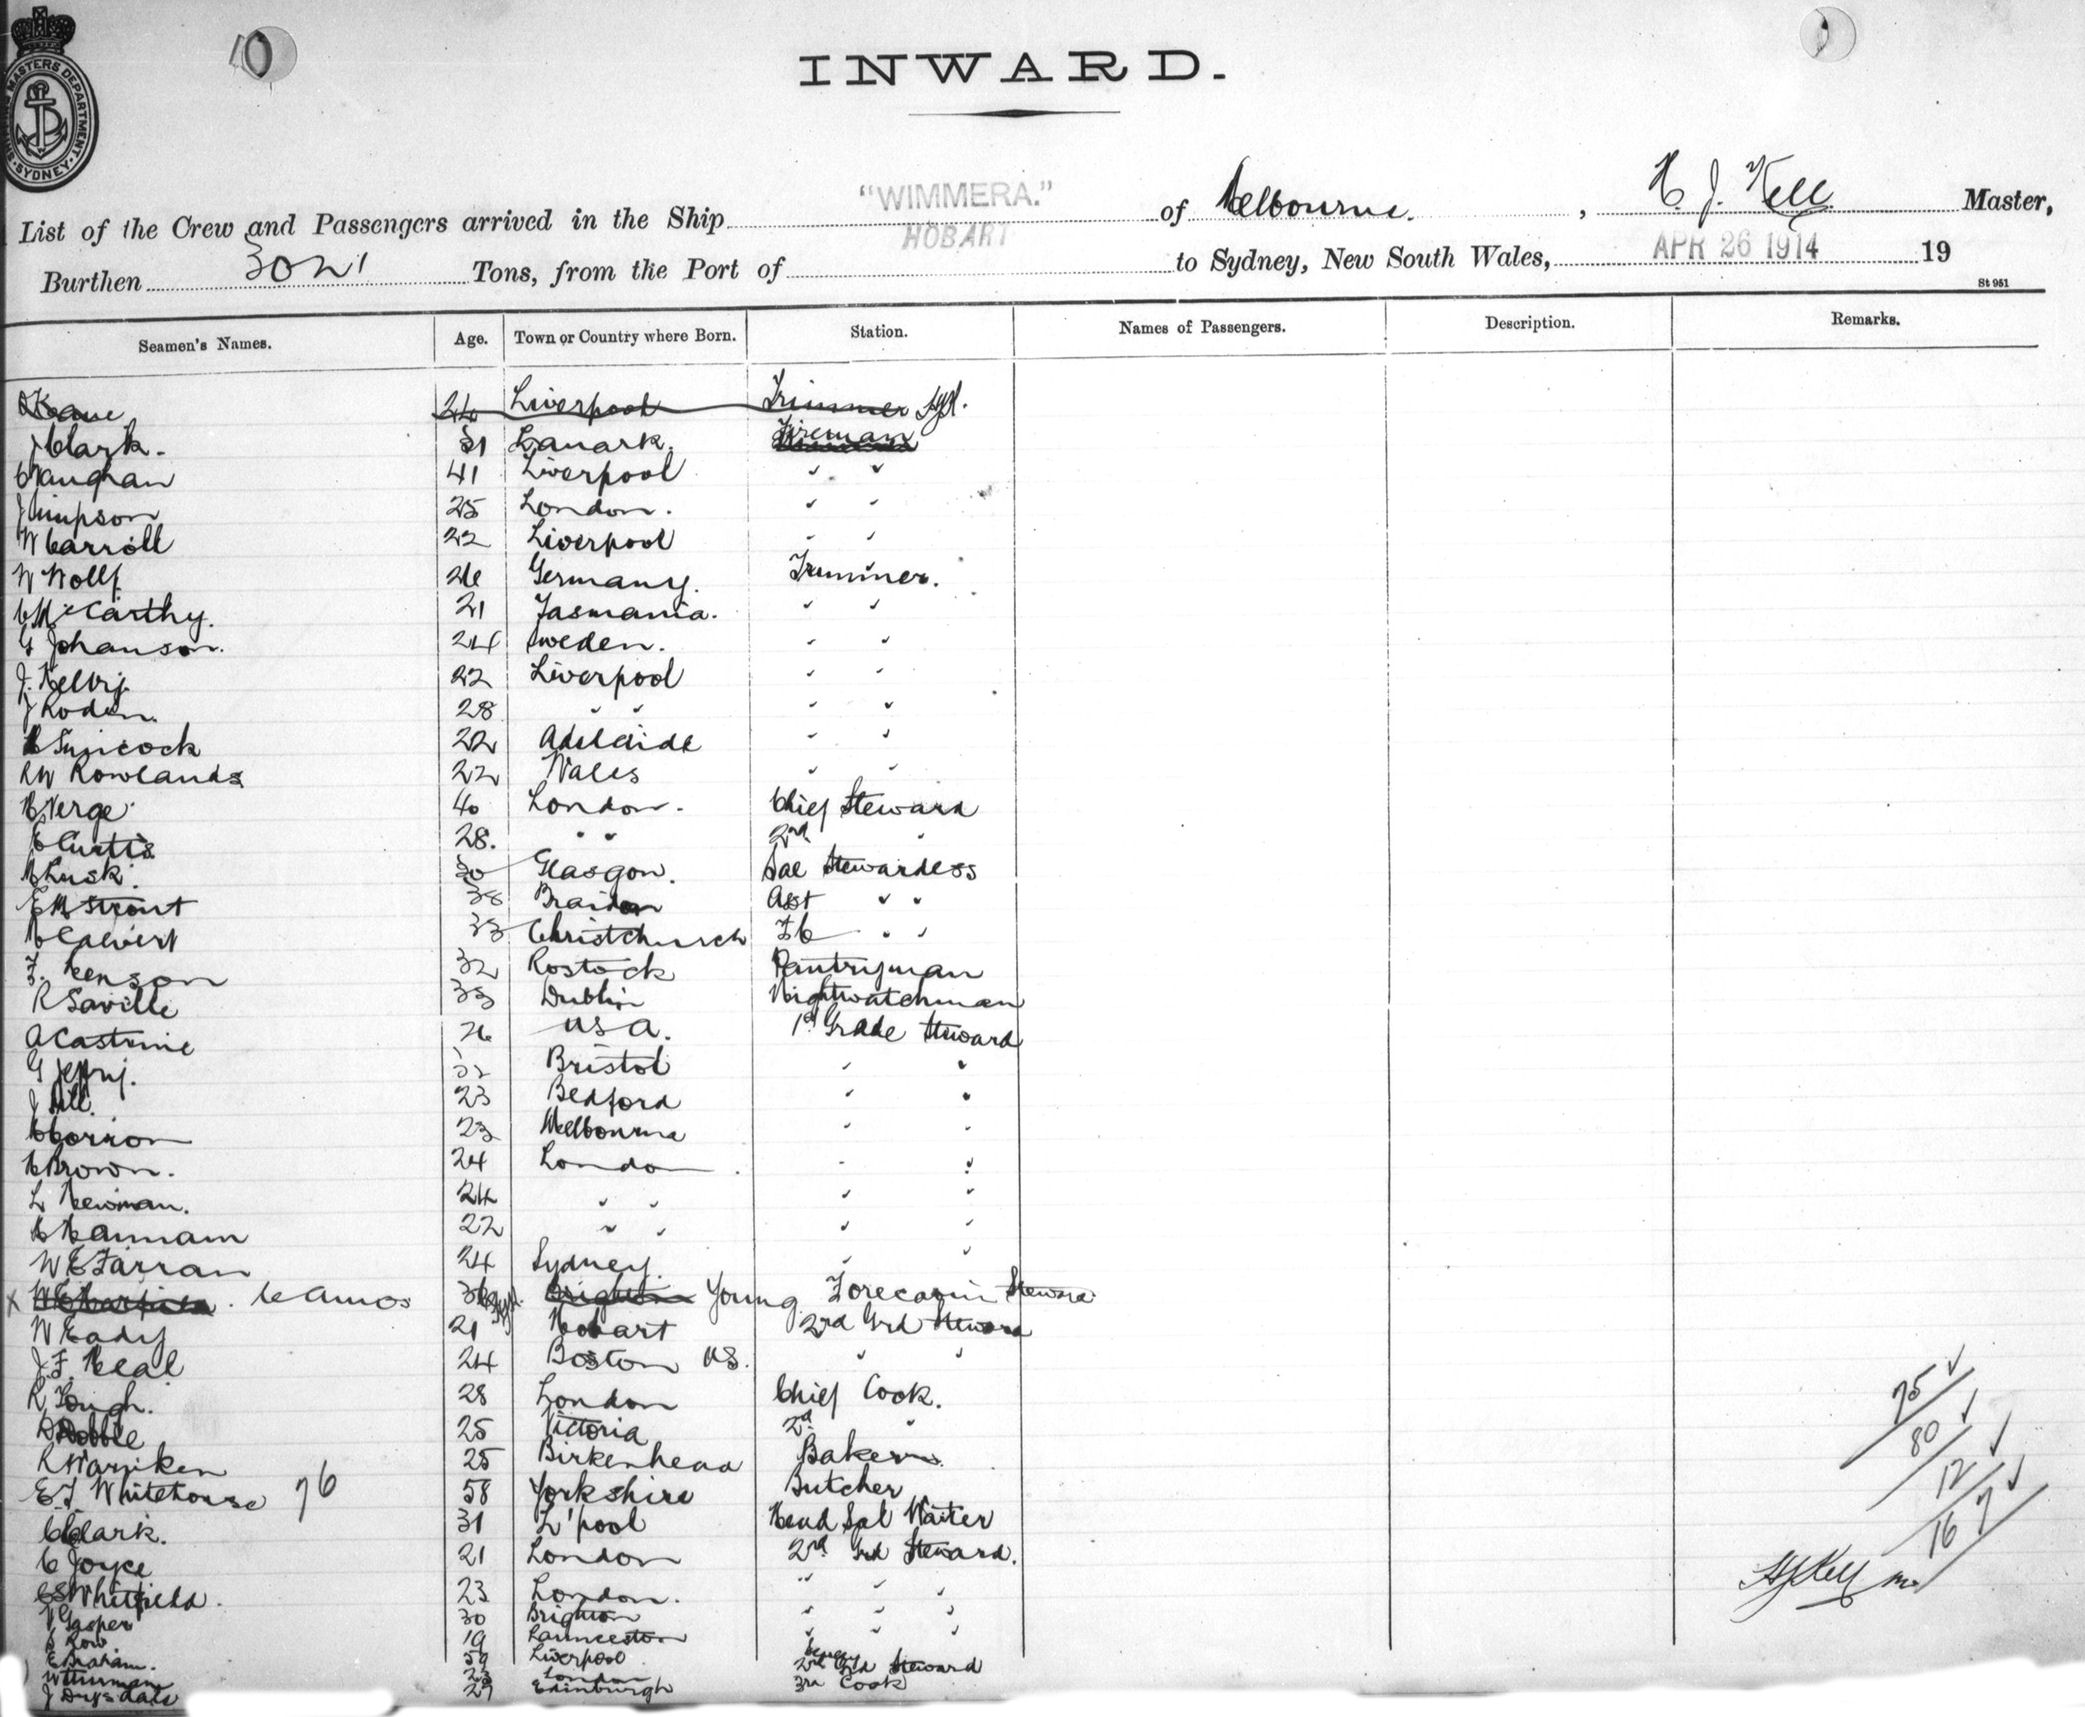 INWARD.
SHIPPING MASTERS DEPARTMENT. SYDNEY
List of the Crew and Passengers arrived in the Ship "WIMMERA." of Melbourne. , H. J. Kell Master,
Burthen 3021 Tons, from the Port of HOBART to Sydney, New South Wales, APR 26 1914 19
St 951
Seamen's Names. Age. Town or Country where Born. Station. Names of Passengers. Description. Remarks.
Keane 24 Liverpool Trimmer Syd.
J Clark. 51 Lanark. Fireman
C Vaughan 41 Liverpool " "
J Simpson 25 London. " "
W Carroll 22 Liverpool " "
W Wolff 26 Germany. Trimmer.
C McCarthy. 21 Tasmania. " "
G Johanson. 24 Sweden. " "
J. Kelly. 22 Liverpool " "
J Roden. 28 " " " "
H Simcock 22 Adelaide " "
R W Rowlands 22 Wales " "
H Verge 40 London. Chief Steward
C Curtis 28. " " 2nd "
M Lusk. 30 Glasgow. Sal Stewardess
E M Strout 38 Asst " "
Calvert 33 Christchurch FC " "
F. Henson 32 Rostock Pantryman
R Saville 33 Dublin Nightwatchman
A Castrine 26 USA. 1st Grade Steward
G Jeffry. 32 Bristol " "
J Dill. 23 Bedford " "
C Corrion 23 Melbourne " "
H Brown. 24 London. " "
L Newman. 24 " " " "
C Hannam 22 " " " "
W E Farran 24 Sydney. " "
X C Amos 36 Syd. Brighton Young Forecabin Steward
W Eady 21 Hobart 2nd Grd Steward
J. F. Neal 24 Boston US. " "
R Tough. 28 London Chief Cook.
Dobble 25 Victoria 2nd "
R Warriken 25 Birkenhead Baker
E. J. Whitehouse 76 58 Yorkshire Butcher
C Clark. 31 L'pool Head Sal Waiter
C Joyce 21 London 2nd Grd Steward.
C S Whitfield. 23 London. " " "
V Gasper 30 Brighton " " "
S Row 19 Launceston " " "
E Braham. 59 Liverpool
W Thurman 23 London 2nd Grd Steward
J Drysdale 27 Edinburgh 3rd Cook
75
80
12
16 7
H J Kell